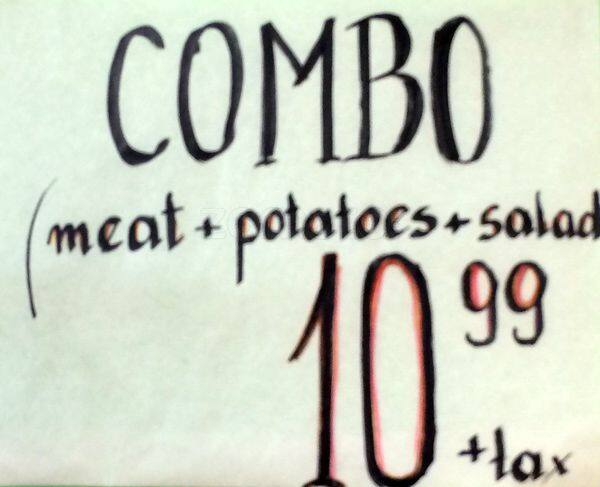 COMBO
(meat + potatoes + salad
10 99
+ tax